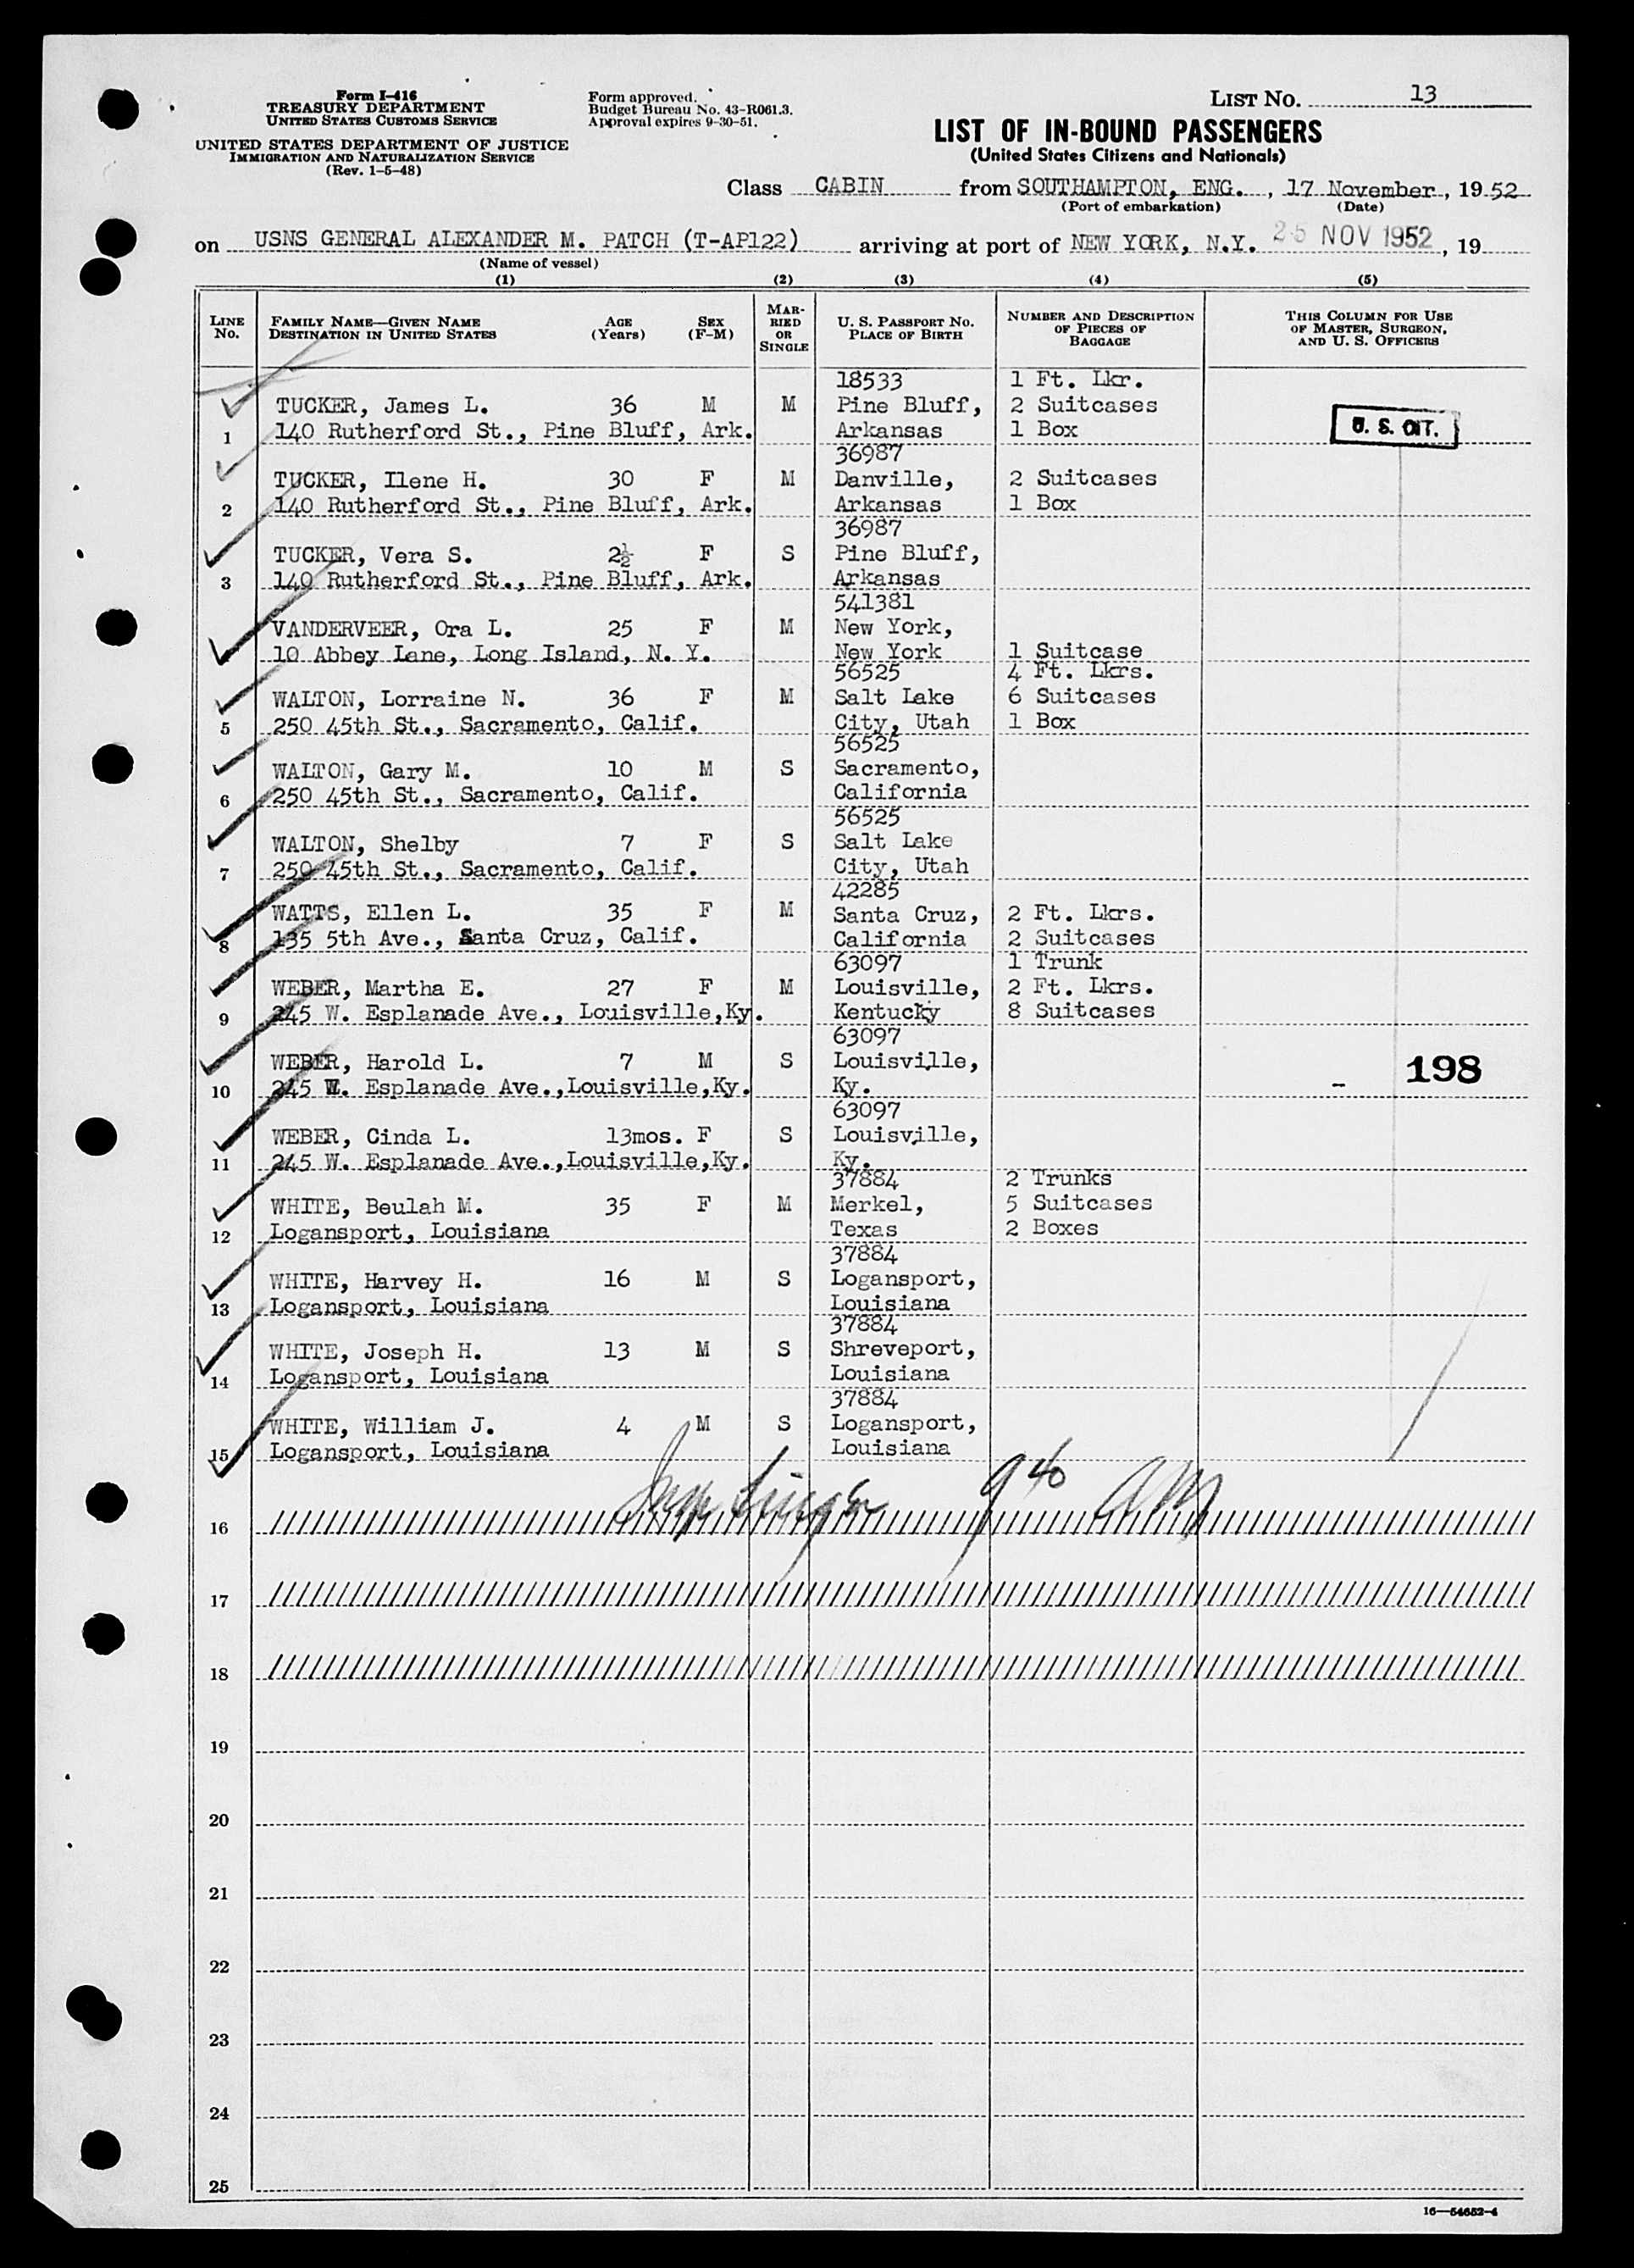 Form I-416
TREASURY DEPARTMENT
UNITED STATES CUSTOMS SERVICE
UNITED STATES DEPARTMENT OF JUSTICE
IMMIGRATION AND NATURALIZATION SERVICE
(Rev. 1-5-48)
Form approved.
Budget Bureau No. 43-R061.3.
Approval expires 9-30-51.
LIST NO. 13
LIST OF IN-BOUND PASSENGERS
(United States Citizens and Nationals)
Class CABIN from SOUTHAMPTON, ENG. , 17 November , 19 52
(Port of embarkation) (Date)
on USNS GENERAL ALEXANDER M. PATCH (T-AP122) arriving at port of NEW YORK, N.Y. 25 NOV 1952 , 19
(Name of vessel)
(1) (2) (3) (4) (5)
LINE NO. FAMILY NAME—GIVEN NAME DESTINATION IN UNITED STATES AGE (Years) SEX (F-M) MARRIED OR SINGLE U. S. PASSPORT NO. PLACE OF BIRTH NUMBER AND DESCRIPTION OF PIECES OF BAGGAGE THIS COLUMN FOR USE OF MASTER, SURGEON, AND U. S. OFFICERS
18533 1 Ft. Lkr.
TUCKER, James L. 36 M M Pine Bluff, 2 Suitcases
1 140 Rutherford St., Pine Bluff, Ark. Arkansas 1 Box U. S. CIT.
36987
TUCKER, Ilene H. 30 F M Danville, 2 Suitcases
2 140 Rutherford St., Pine Bluff, Ark. Arkansas 1 Box
36987
TUCKER, Vera S. 2½ F S Pine Bluff,
3 140 Rutherford St., Pine Bluff, Ark. Arkansas
541381
VANDERVEER, Ora L. 25 F M New York,
10 Abbey Lane, Long Island, N. Y. New York 1 Suitcase
56525 4 Ft. Lkrs.
WALTON, Lorraine N. 36 F M Salt Lake 6 Suitcases
5 250 45th St., Sacramento, Calif. City, Utah 1 Box
56525
WALTON, Gary M. 10 M S Sacramento,
6 250 45th St., Sacramento, Calif. California
56525
WALTON, Shelby 7 F S Salt Lake
7 250 45th St., Sacramento, Calif. City, Utah
42285
WATTS, Ellen L. 35 F M Santa Cruz, 2 Ft. Lkrs.
8 135 5th Ave., Santa Cruz, Calif. California 2 Suitcases
63097 1 Trunk
WEBER, Martha E. 27 F M Louisville, 2 Ft. Lkrs.
9 245 W. Esplanade Ave., Louisville,Ky. Kentucky 8 Suitcases
63097
WEBER, Harold L. 7 M S Louisville, 198
10 245 W. Esplanade Ave.,Louisville,Ky. Ky.
63097
WEBER, Cinda L. 13mos. F S Louisville,
11 245 W. Esplanade Ave.,Louisville,Ky. Ky.
37884 2 Trunks
WHITE, Beulah M. 35 F M Merkel, 5 Suitcases
12 Logansport, Louisiana Texas 2 Boxes
37884
WHITE, Harvey H. 16 M S Logansport,
13 Logansport, Louisiana Louisiana
37884
WHITE, Joseph H. 13 M S Shreveport,
14 Logansport, Louisiana Louisiana
37884
WHITE, William J. 4 M S Logansport,
15 Logansport, Louisiana Louisiana
9 40 AM
16
17
18
19
20
21
22
23
24
25
16—54652-4